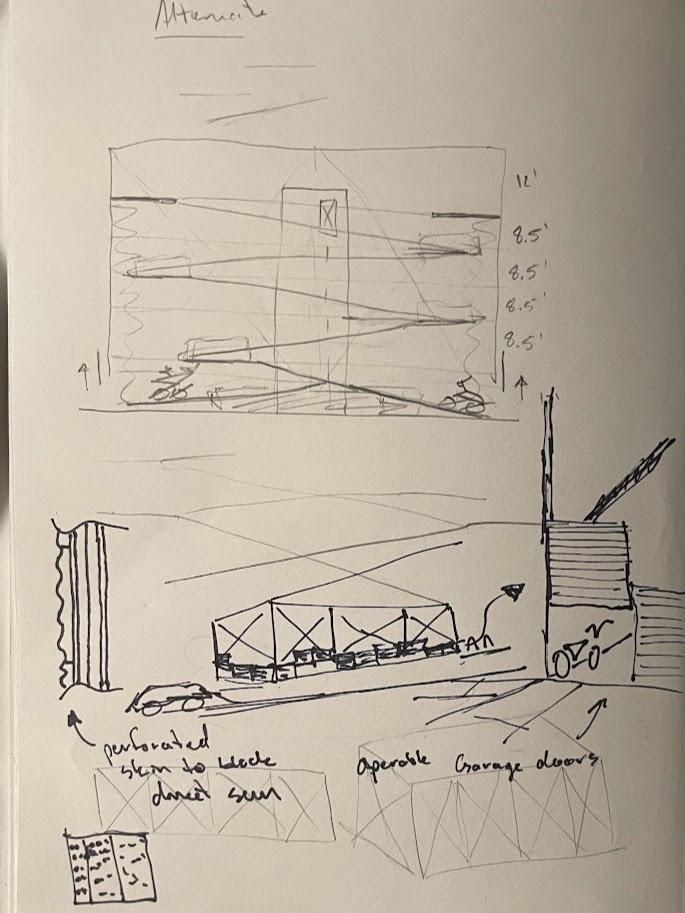 Alternate
12'
8.5'
8.5'
8.5'
8.5'
perforated
skin to block
direct sun
operable Garage doors